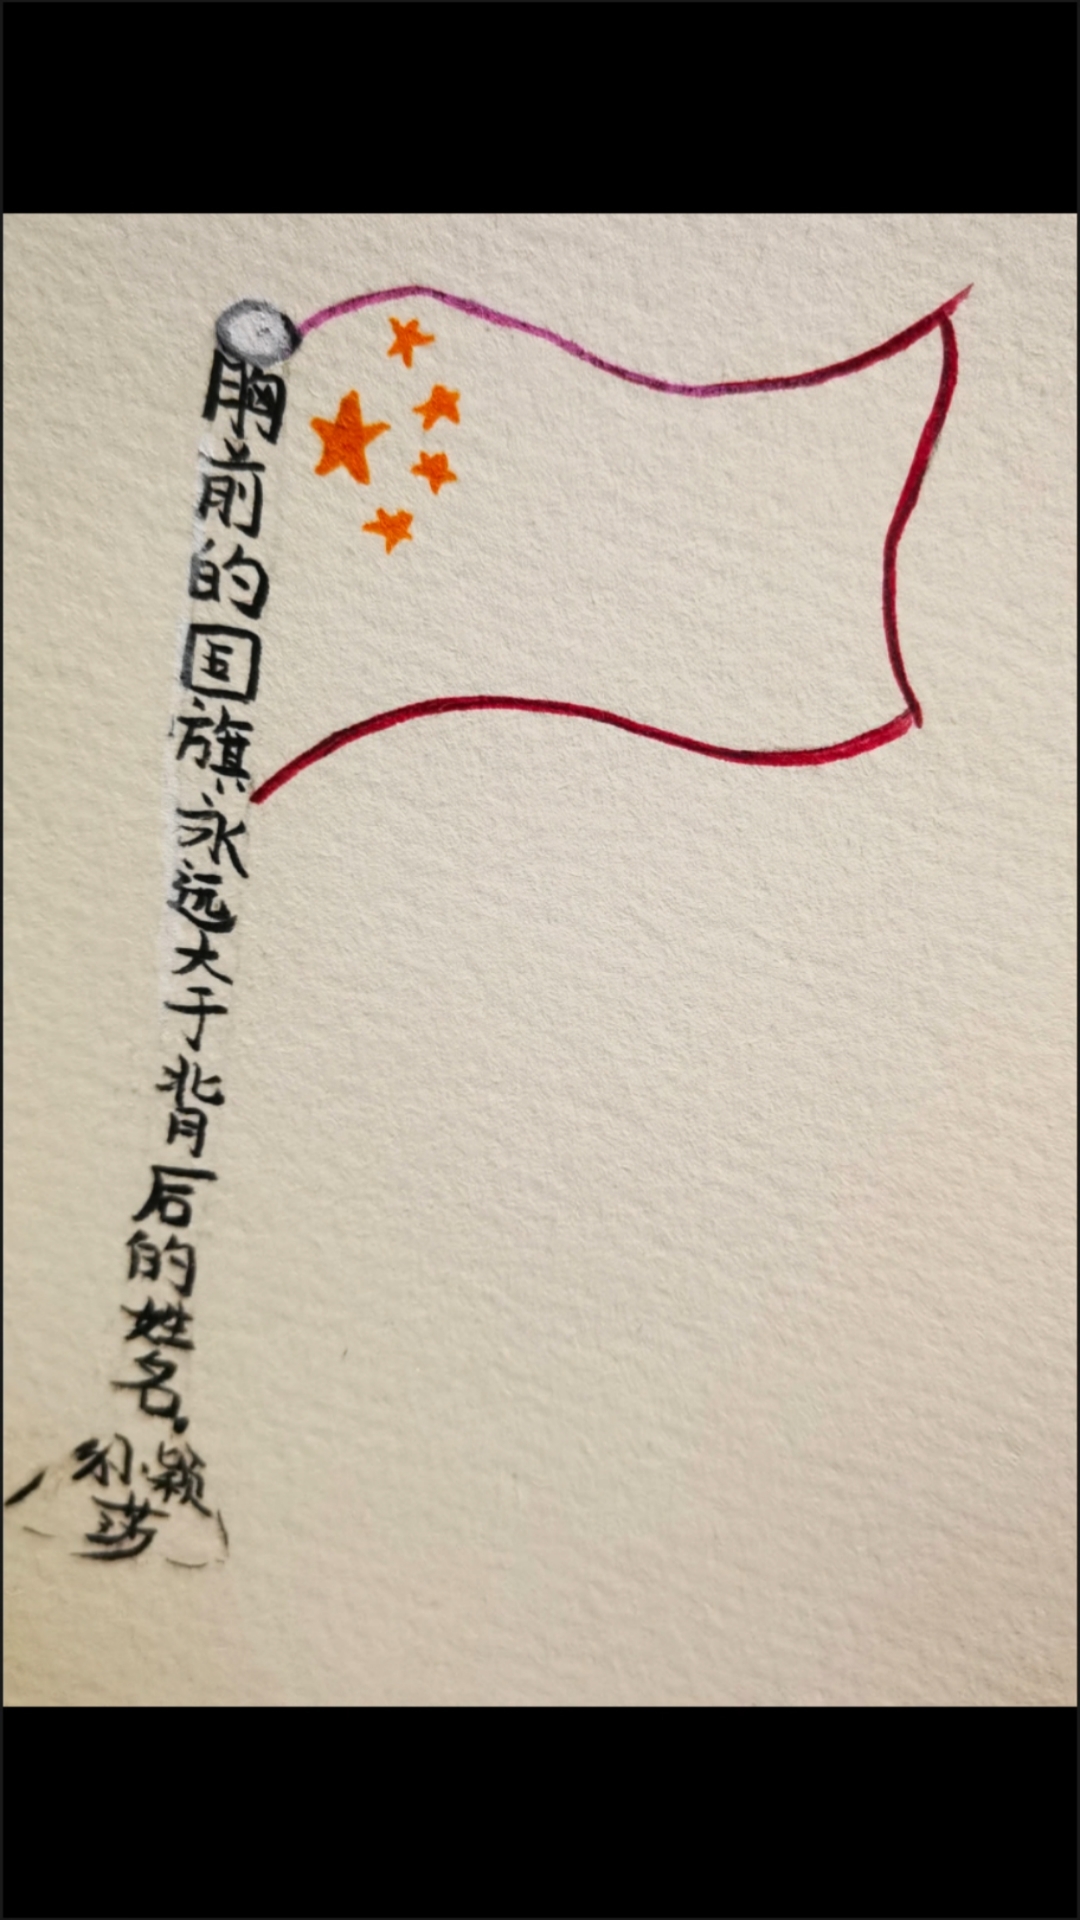 胸前的国旗永远大于背后的姓名.
孙颖
莎